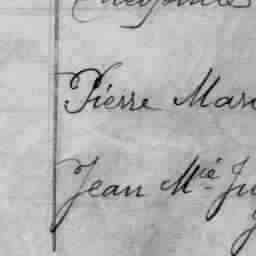 Pierre Mar
Jean Mie Ju